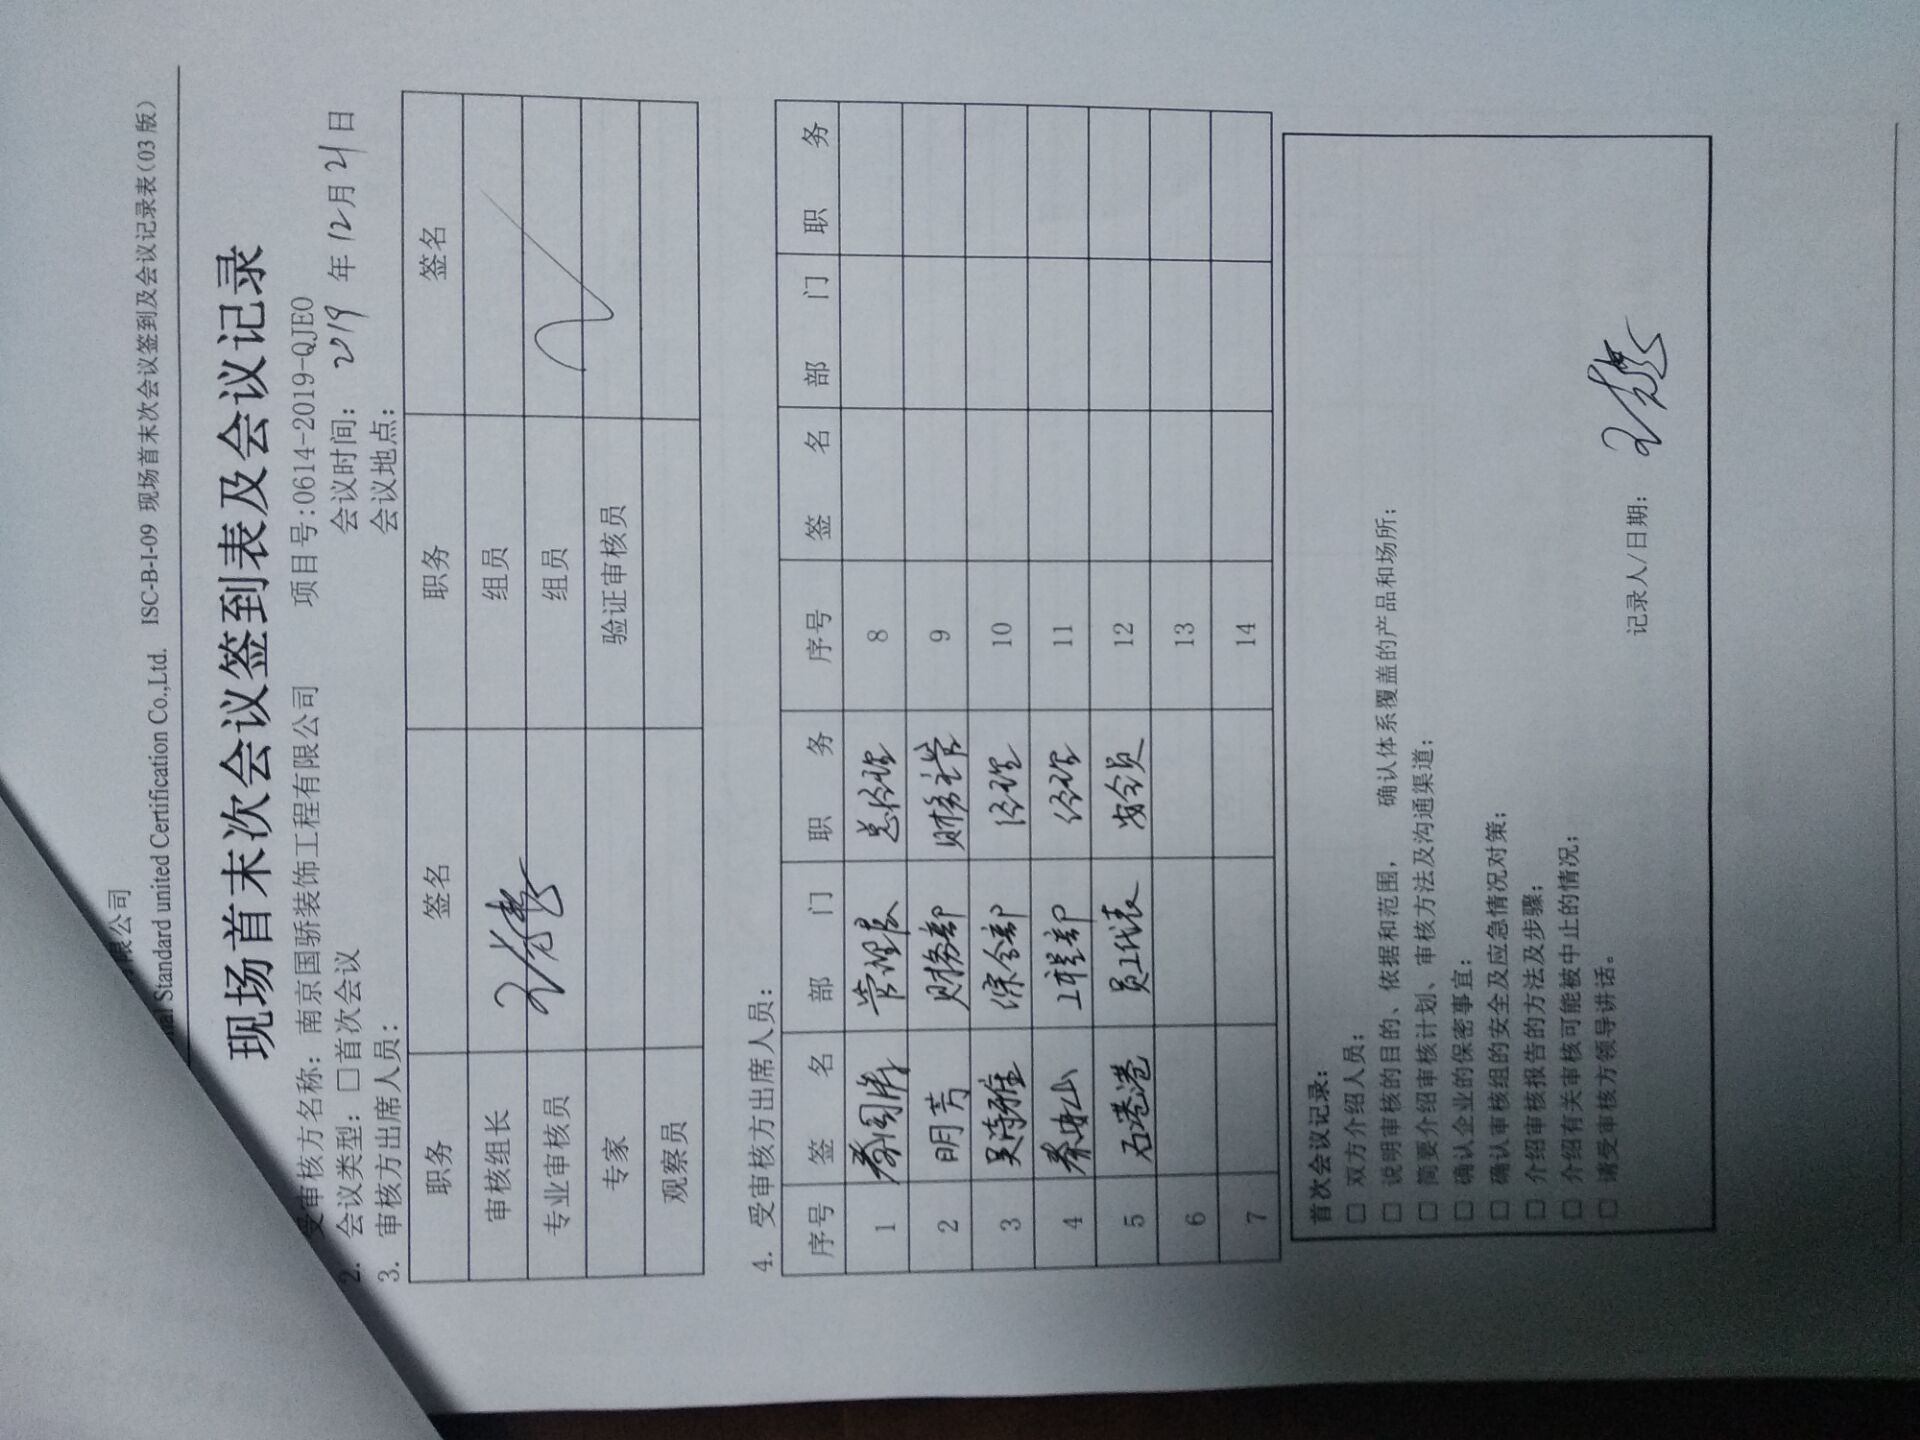 限公司
Standard united Certification Co.,Ltd. ISC-B-I-09 现场首末次会议签到及会议记录表(03版)
现场首末次会议签到表及会议记录
受审核方名称：南京国骄装饰工程有限公司 项目号:0614-2019-QJEO
2. 会议类型：□首次会议 会议时间： 2019 年 12 月 21 日
3. 审核方出席人员： 会议地点：
职务 签名 职务 签名
审核组长 组员
专业审核员 组员
专家 验证审核员
观察员
4. 受审核方出席人员：
序号 签名 部门 职务 序号 签名 部门 职务
1 管理层 总经理 8
2 明芳 财务部 财务主管 9
3 吴诗雅 综合部 经理 10
4 工程部 经理 11
5 石港港 员工代表 安全员 12
6 13
7 14
首次会议记录：
□ 双方介绍人员；
□ 说明审核的目的、依据和范围， 确认体系覆盖的产品和场所；
□ 简要介绍审核计划、审核方法及沟通渠道；
□ 确认企业的保密事宜；
□ 确认审核组的安全及应急情况对策；
□ 介绍审核报告的方法及步骤；
□ 介绍有关审核可能被中止的情况；
□ 请受审核方领导讲话。
记录人/日期：